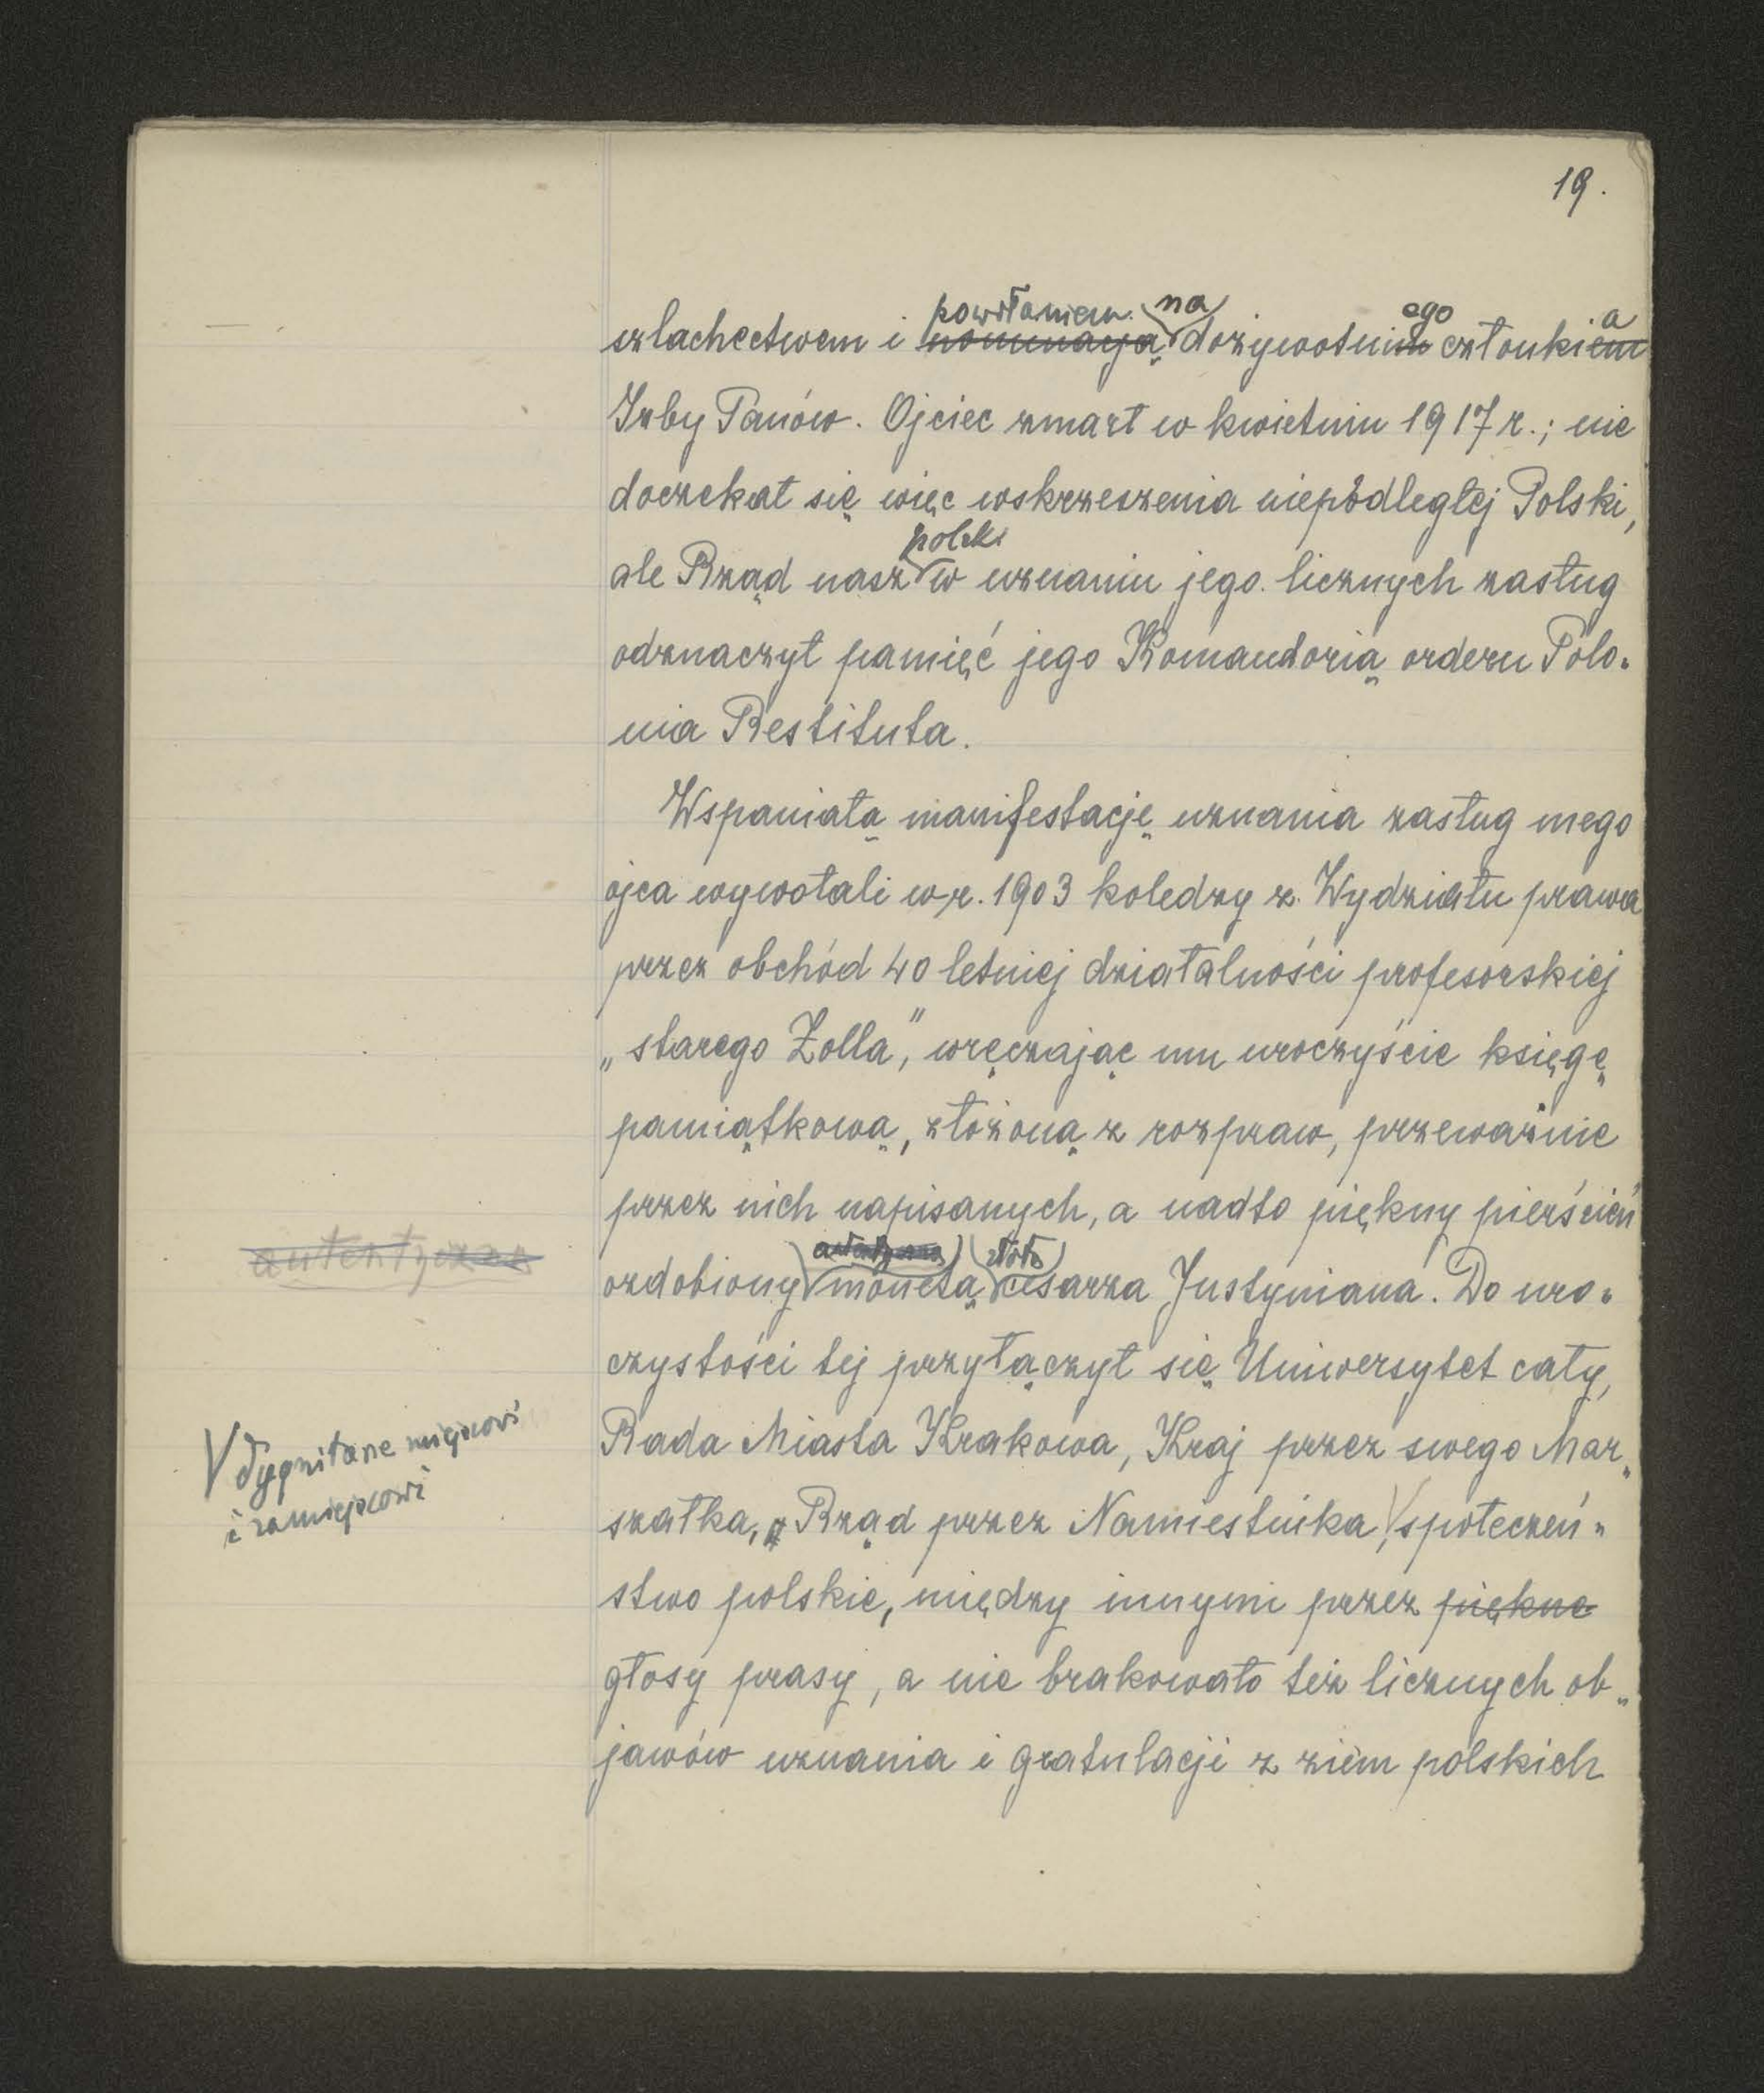 19.
powołaniem na ego a
szlachectwem i nominacją dożywotnim członkiem
Izby Panów. Ojciec zmarł w kwietniu 1917 r.; nie
doczekał się więc wskrzeszenia niepodległej Polski,
polski
ale Rząd nasz w uznaniu jego licznych zasług
odznaczył pamięć jego Komandorią orderu Polo-
nia Restituta.
Wspaniałą manifestację uznania zasług mego
ojca wywołali w r. 1903 koledzy z Wydziału prawa
przez obchód 40 letniej działalności profesorskiej
„starego Zolla”, wręczając mu uroczyście księgę
pamiątkową, złożoną z rozpraw, przeważnie
przez nich napisanych, a nadto piękny pierścień
autentyczną złotą
autentyczną
ozdobiony monetą cesarza Justyniana. Do uro-
czystości tej przyłączył się Uniwersytet cały,
Rada Miasta Krakowa, Kraj przez swego Mar-
V dygnitarze miejscowi
i zamiejscowi
szałka, Rząd przez Namiestnika, V społeczeń-
stwo polskie, między innymi przez piękne
głosy prasy, a nie brakowało też licznych ob-
jawów uznania i gratulacji z ziem polskich